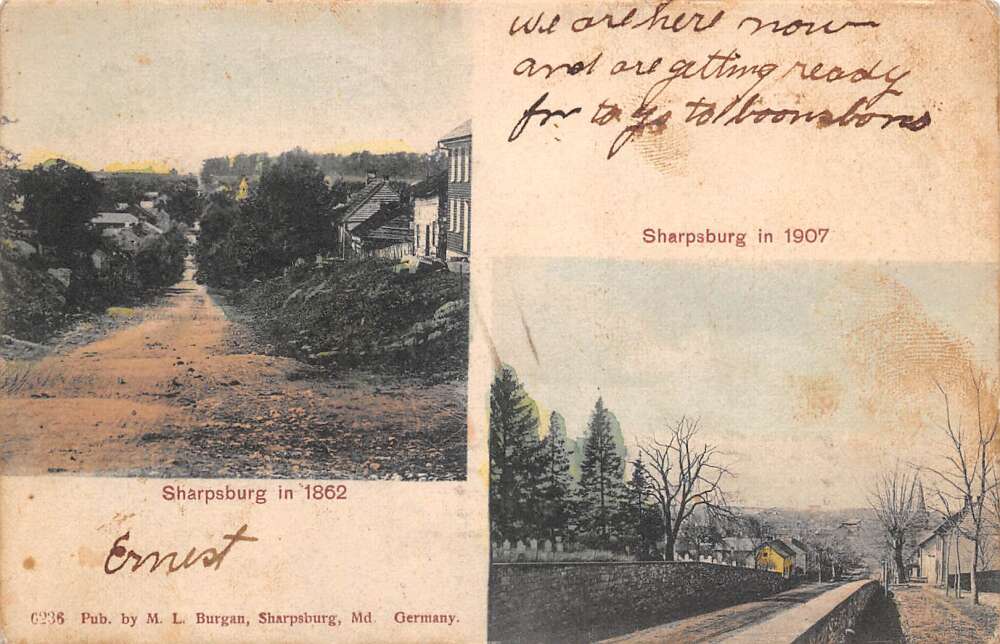 we are here now
and are getting ready
for to go to boonsboro
Sharpsburg in 1907
Sharpsburg in 1862
Ernest
6236 Pub. by M. L. Burgan, Sharpsburg, Md. Germany.